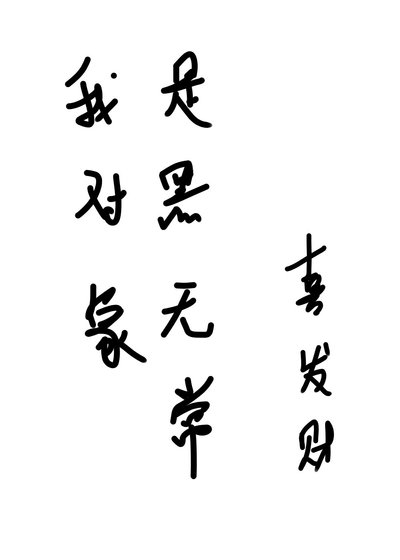 我对象
是黑无常
喜发财